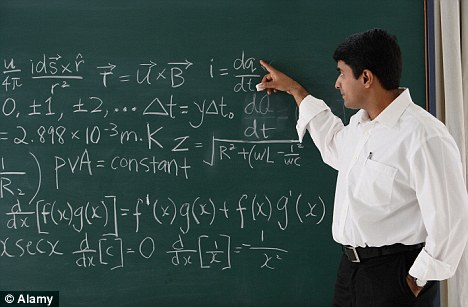 μ/4π id𝑠⃗×r̂/r² τ⃗ = u⃗×B⃗ i = da/dt
0, ±1, ±2, ... Δt = γΔt₀ da/dt
= 2.898 × 10⁻³ m.K Z = √R² + (ωL - 1/ωC
1/R₂) pVA = constant
d/dx [f(x)g(x)] = f'(x)g(x) + f(x)g'(x)
x secx d/dx [c] = 0 d/dx [1/x] = -1/x²
© Alamy